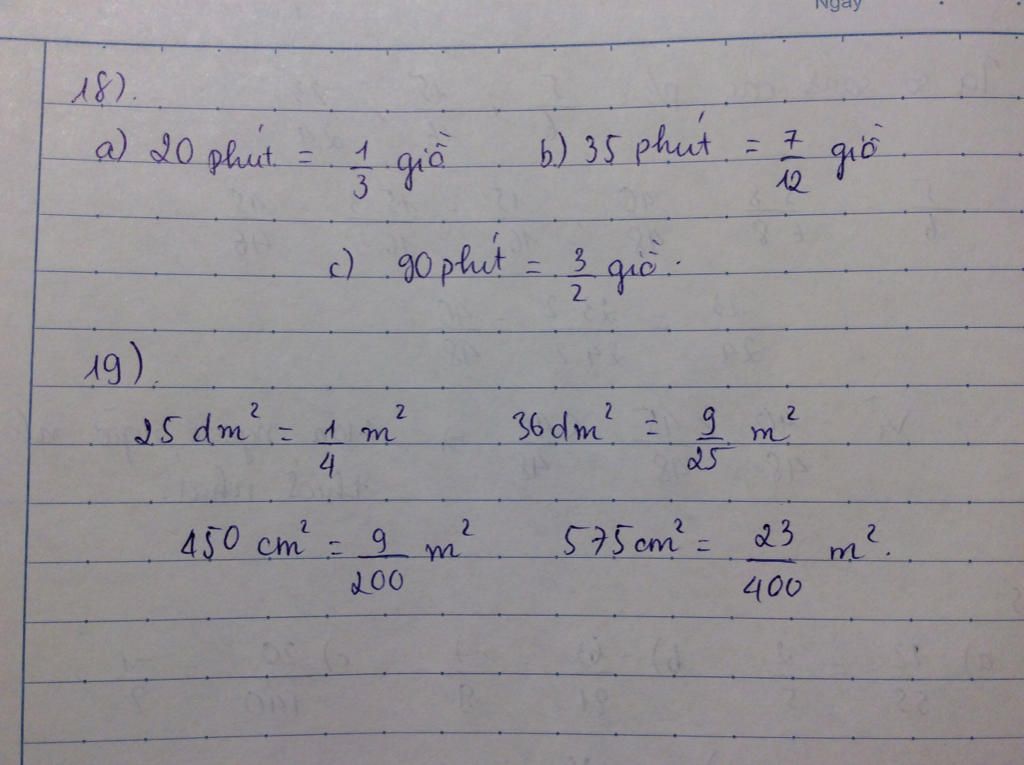 Ngày
18).
a) 20 phút = 1/3 giờ b) 35 phút = 7/12 giờ
c) 90 phút = 3/2 giờ.
19).
25 dm² = 1/4 m² 36 dm² = 9/25 m²
450 cm² = 9/200 m² 575 cm² = 23/400 m².